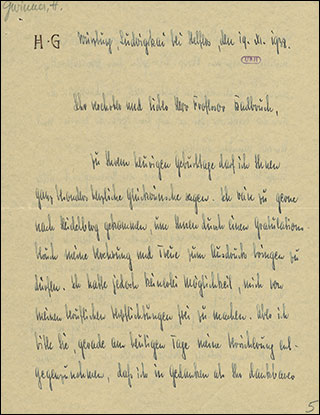 H·G
Würzburg, Ludwigkai bei Helffer, den 19. XI. 19
Ihr verehrter und lieber Herr Professor Radbruch,
zu Ihrem heutigen Geburtstage darf ich Ihnen
ganz besonders herzliche Glückwünsche sagen. Ich wäre zu gerne
nach Heidelberg gekommen, um Ihnen durch einen Gratulations-
besuch meine Verehrung und Treue zum Ausdruck bringen zu
dürfen. Ich hatte jedoch keinerlei Möglichkeit, mich von
meinen beruflichen Verpflichtungen frei zu machen. Aber ich
bitte Sie, gerade am heutigen Tage meine Versicherung ent-
gegenzunehmen, daß ich in Gedanken als Ihr dankbarer
5